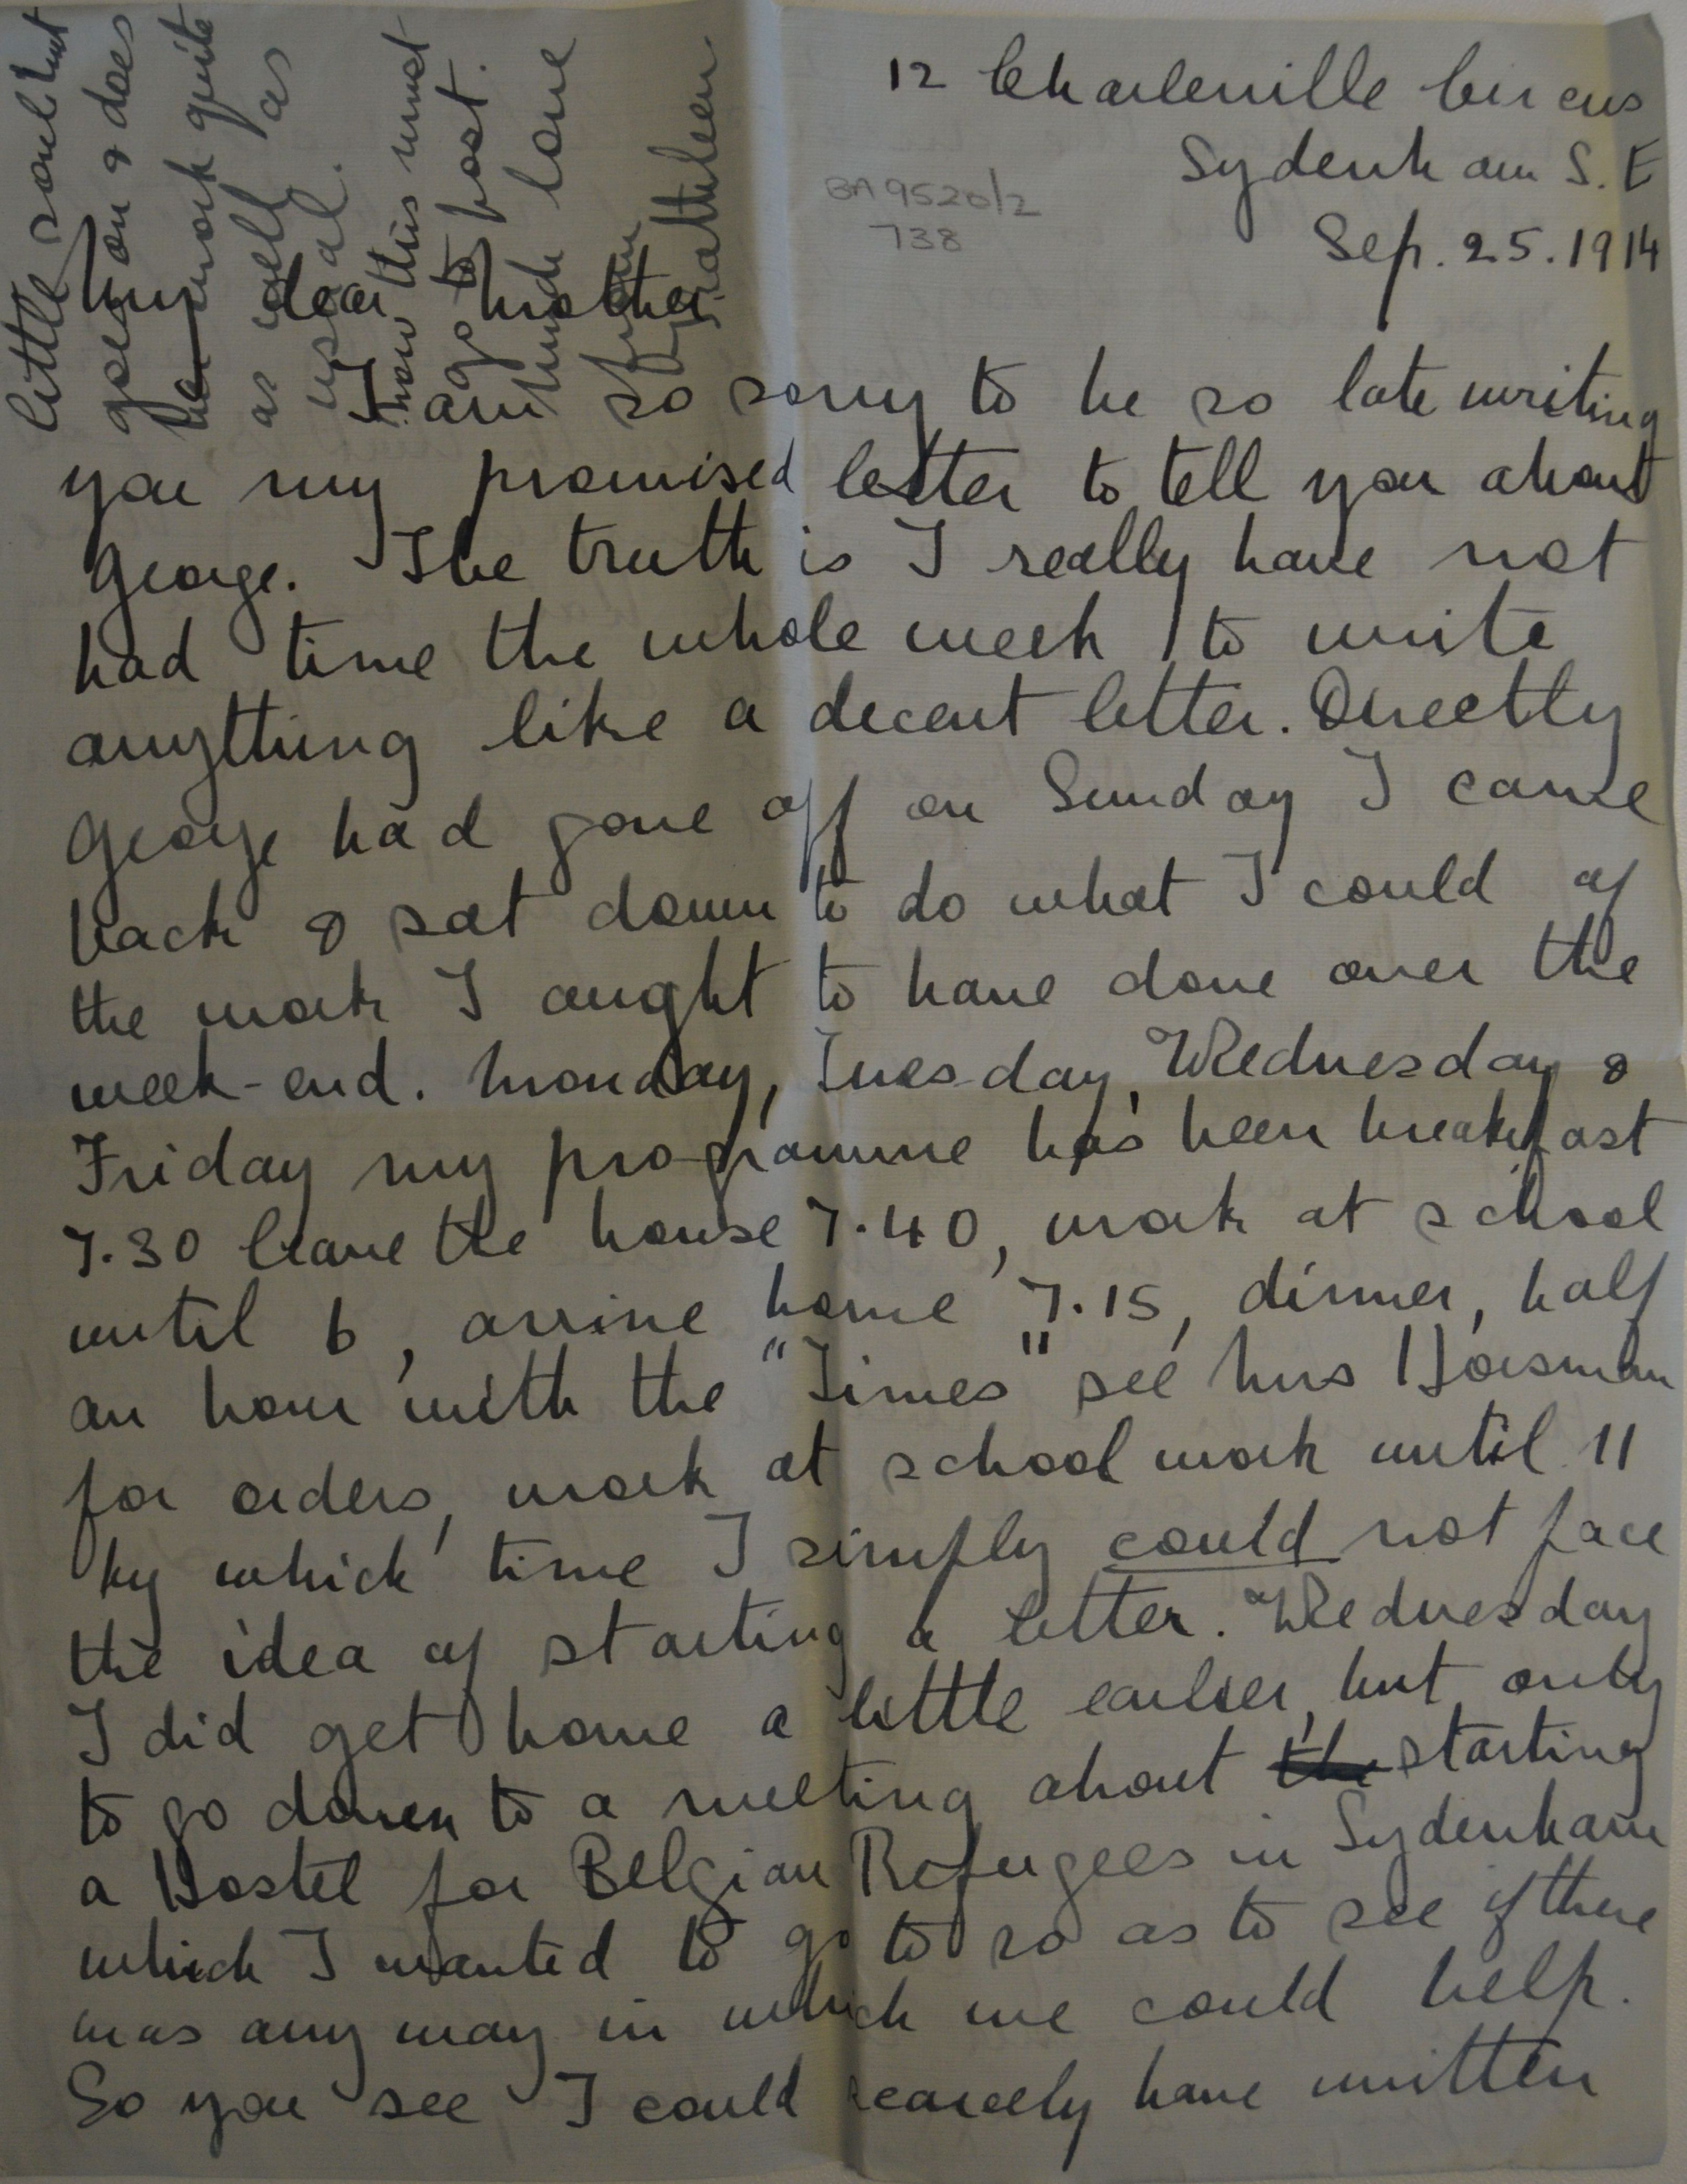 12 Charleville Circus
Sydenham S.E
Sep. 25. 1914
BA 9520/2
738
My dear Mother
I am so sorry to be so late writing
you my promised letter to tell you about
George. The truth is I really have not
had time the whole week to write
anything like a decent letter. Directly
George had gone off on Sunday I came
back & sat down to do what I could of
the work I ought to have done over the
week-end. Monday, Tuesday, Wednesday &
Friday my programme has been breakfast
7.30 leave the house 7.40, work at school
until 6, arrive home 7.15, dinner, half
an hour with the "Times" see Mrs Horsman
for orders, work at school work until 11
by which time I simply could not face
the idea of starting a letter. Wednesday
I did get home a little earlier, but only
to go down to a meeting about the starting
a Hostel for Belgian Refugees in Sydenham
which I wanted to go to so as to see if there
was any way in which we could help.
So you see I could scarcely have written
little soul but
goes on & does
her work quite
as well as
usual.
Now this must
go to post.
Much love
from
Kathleen